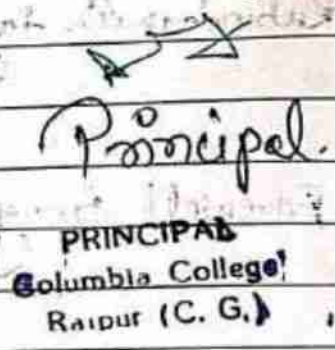 Principal.
PRINCIPAL
Columbia College
Raipur (C. G.)